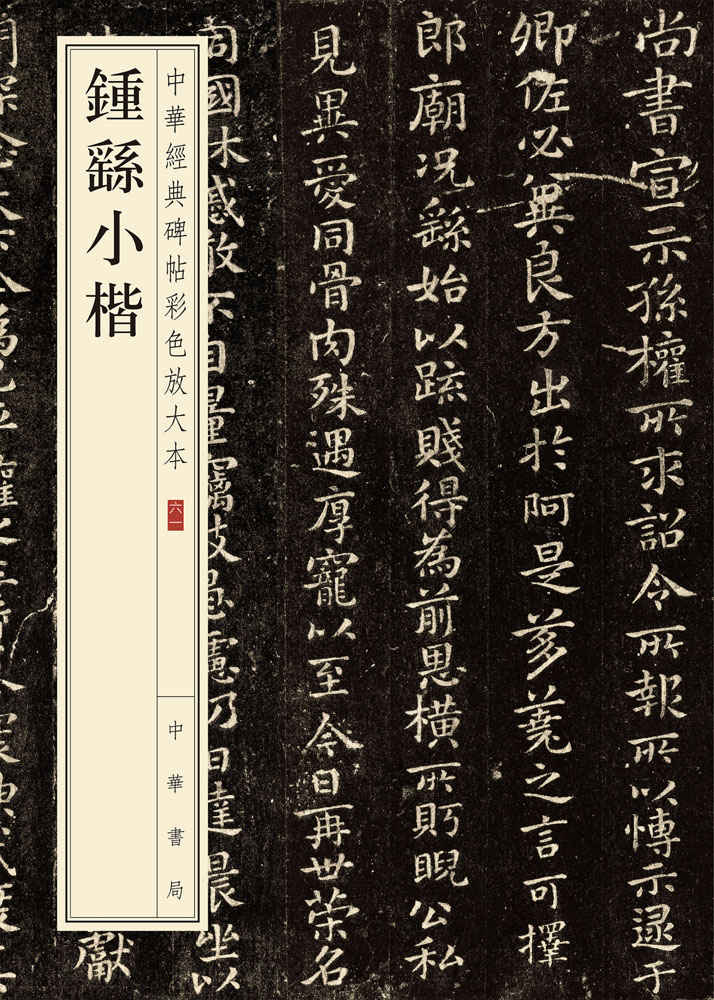 尚書宣示孫權所求詔令所報所以愽示逯于
卿佐必兾良方出於阿是芻蕘之言可擇
郎廟况繇始以疏賤得為前恩横所眄睨公私
見異愛同骨肉殊遇厚寵以至今日再世榮名
同國休慼敢不自量竊致愚慮仍日達晨坐以
中華經典碑帖彩色放大本
六一
中華書局
鍾繇小楷
獻